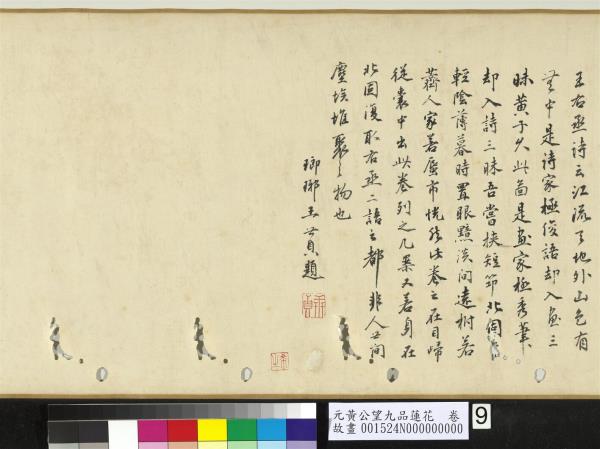 王右丞詩云江流天地外山色有
無中是詩家極俊語却入畫三
昧黃子久此圖是畫家極秀筆
却入詩三昧吾嘗挾短筇北固
輕陰薄暮時置眼黯淡間遠樹若
薺人家若蜃市恍然此卷之在目歸
從橐中出此卷列之几案又若身在
北固復取右丞二語云都非人世間
塵埃堆聚之物也
瑯琊王世貞題
元黃公望九品蓮花 卷
故畫 001524N000000000
9